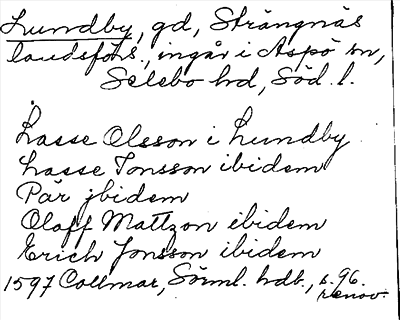 Lundby, gd, Strängnäs
landsförs., ingår i Aspö sn,
Selebo hd, Söd. l.
Lasse Olsson i Lundby
Lasse Jonsson ibidem
Pär jbidem
Oloff Mattzon ibidem
Erich Jonsson ibidem
1597 Collmar, Sörml. hdb., s. 96.
renov.